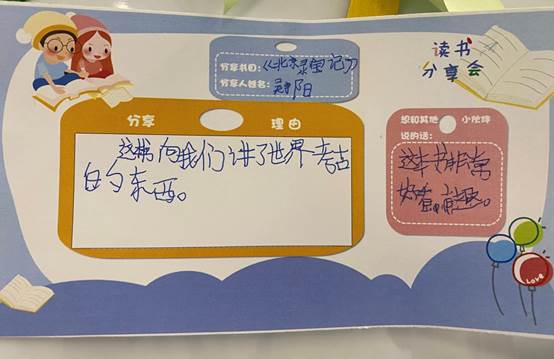 读书
分享会
分享书目:《北京寻宝记》
分享人姓名: 阳
分享 理由
这书向我们讲了世界考古
的东西。
想和其他小伙伴
说的话:
这本书非常
好看
Love